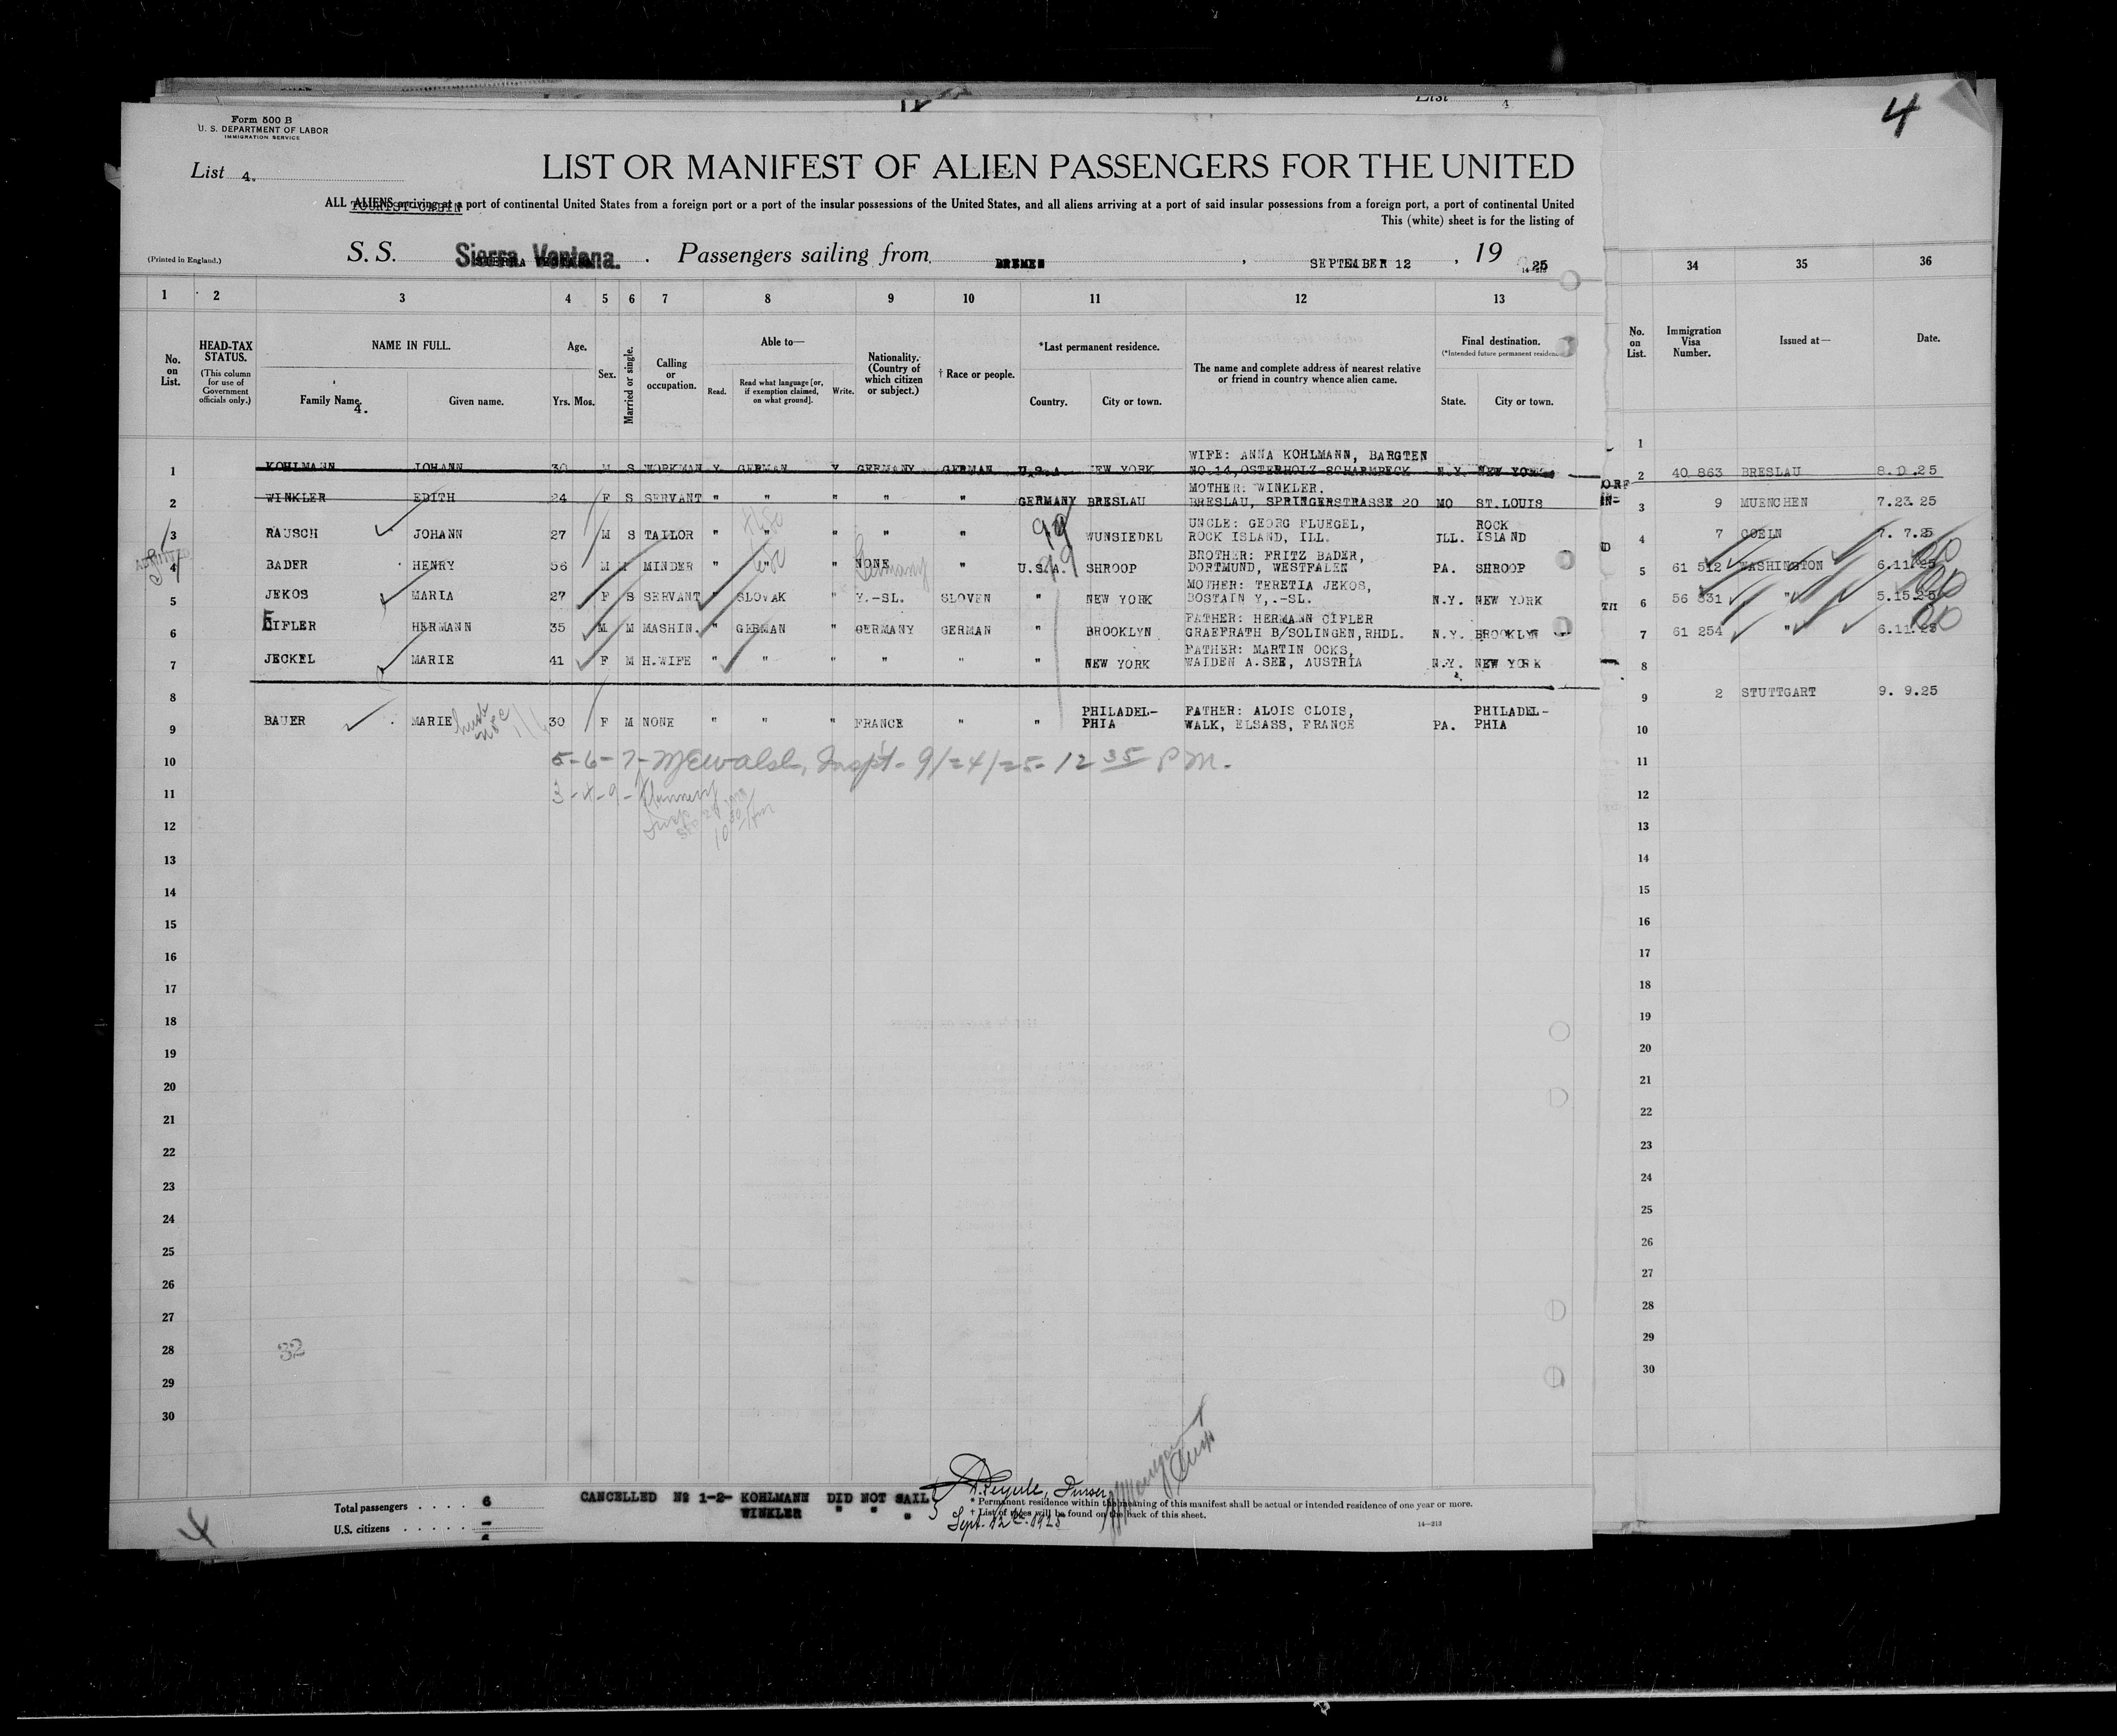 4
List 4
Form 500 B
U. S. DEPARTMENT OF LABOR
IMMIGRATION SERVICE
List 4.
LIST OR MANIFEST OF ALIEN PASSENGERS FOR THE UNITED
ALL ALIENS arriving at a port of continental United States from a foreign port or a port of the insular possessions of the United States, and all aliens arriving at a port of said insular possessions from a foreign port, a port of continental United
TOURIST-CABIN
This (white) sheet is for the listing of
(Printed in England.)
S. S. Sierra Ventana. Passengers sailing from BREMEN, SEPTEMBER 12, 19 25
14-213
1 2 3 4 5 6 7 8 9 10 11 12 13
34 35 36
No. on List.
HEAD-TAX STATUS.
(This column for use of Government officials only.)
NAME IN FULL.
Family Name. Given name.
4.
Age.
Yrs. Mos.
Sex.
Married or single.
Calling or occupation.
Able to—
Read. Read what language [or, if exemption claimed, on what ground]. Write.
Nationality. (Country of which citizen or subject.)
† Race or people.
*Last permanent residence.
Country. City or town.
The name and complete address of nearest relative or friend in country whence alien came.
Final destination.
(*Intended future permanent residence
State. City or town.
No. on List.
Immigration Visa Number.
Issued at—
Date.
WIFE: ANNA KOHLMANN, BARGTEN
1 KOHLMANN JOHANN 30 M S WORKMAN Y GERMAN Y GERMANY GERMAN U.S.A. NEW YORK NO.14,OSTERHOLZ-SCHARMBECK N.Y. NEW YORK
MOTHER: WINKLER,
2 WINKLER EDITH 24 F S SERVANT " " " " " GERMANY BRESLAU BRESLAU, SPRINGERSTRASSE 20 MO ST.LOUIS
UNCLE: GEORG FLUEGEL, ROCK
3 RAUSCH JOHANN 27 M S TAILOR " " " " " WUNSIEDEL ROCK ISLAND, ILL. ILL. ISLAND
BROTHER: FRITZ BADER,
4 BADER HENRY 56 M MINDER " " " NONE Germany " U.S.A. SHROOP DORTMUND, WESTFALEN PA. SHROOP
MOTHER: TERETIA JEKOS,
5 JEKOS MARIA 27 F S SERVANT " SLOVAK " Y.-SL. SLOVEN " NEW YORK BOSTAIN Y,.-SL. N.Y. NEW YORK
FATHER: HERMANN CIFLER
6 EIFLER HERMANN 35 M M MASHIN. " GERMAN " GERMANY GERMAN " BROOKLYN GRAEFRATH B/SOLINGEN,RHDL. N.Y. BROOKLYN
FATHER: MARTIN OCKS,
7 JECKEL MARIE 41 F M H.WIFE " " " " " " NEW YORK WAIDEN A.SEE, AUSTRIA N.Y. NEW YORK
8
PHILADEL- FATHER: ALOIS CLOIS, PHILADEL-
9 BAUER MARIE 30 F M NONE " " " FRANCE " " PHIA WALK, ELSASS, FRANCE PA. PHIA
5-6-7- Insp't- 9/24/25- 12 35 P.M.
3-4-9-
10
11
12
13
14
15
16
17
18
19
20
21
22
23
24
25
26
27
28
29
30
32
1
2 40 863 BRESLAU 8.D .25
3 9 MUENCHEN 7.23.25
4 7 COELN 7. 7.25
5 61 512 WASHINGTON 6.11.25
6 56 331 " 5.15.25
7 61 254 " 6.11.25
8
9 2 STUTTGART 9. 9.25
10
11
12
13
14
15
16
17
18
19
20
21
22
23
24
25
26
27
28
29
30
Total passengers . . . . 6
U.S. citizens . . . . . -
CANCELLED No 1-2- KOHLMANN DID NOT SAIL
WINKLER " " "
Sept. 12th 1925
* Permanent residence within the meaning of this manifest shall be actual or intended residence of one year or more.
† List of races will be found on the back of this sheet.
14—213
4